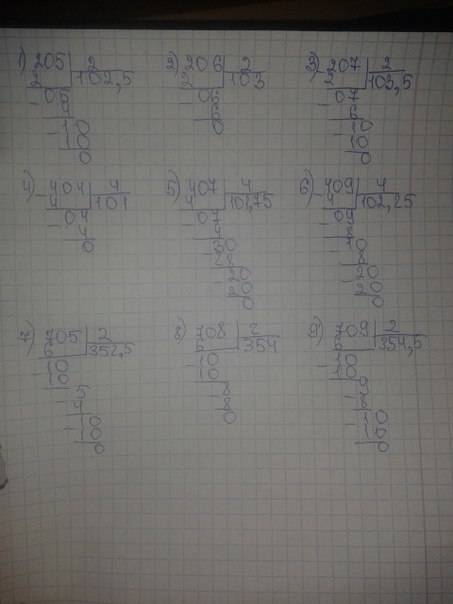 1) 205 2 2) 206 2 3) 207 2
2 102,5 2 103 2 103,5
- 05 - 06 - 07
4 6 6
- 10 0 - 10
10 10
0 0
4) - 404 4 5) 407 4 6) - 409 4
4 101 4 101,75 4 102,25
- 04 - 07 - 09
4 4 8
0 - 30 - 10
28 8
- 20 - 20
20 20
0 0
7) 705 2 8) 708 2 9) 709 2
6 352,5 6 354 6 354,5
- 10 - 10 - 10
10 10 10
- 5 - 8 - 9
4 8 8
- 10 0 - 10
10 10
0 0